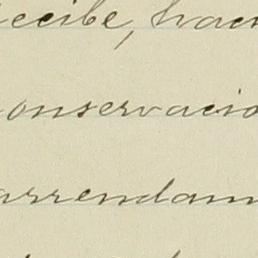 recibe, hac
onservacio
arrendam